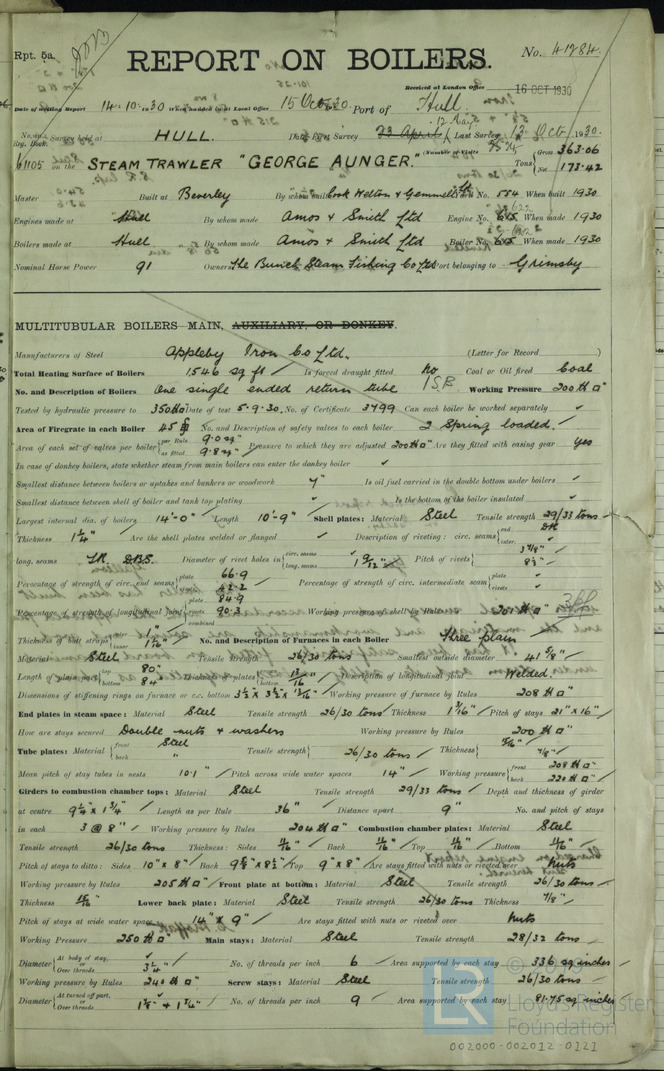 Rpt. 5a.
REPORT ON BOILERS.
No. 41284.
Received at London Office 16 OCT 1930
Date of writing Report 14.10.1930 When handed in at Local Office 15 Oct 1930 Port of Hull.
No. in Reg. Book. Survey held at HULL. Date, First Survey 23 April Last Survey 13 Oct 1930.
61105 on the STEAM TRAWLER "GEORGE AUNGER." (Number of Visits Tons Gross 363.06 Net 173.42
Master Built at Beverley By whom built Cook Welton & Gemmell Ltd Yard No. 554 When built 1930
Engines made at Hull By whom made Amos & Smith Ltd Engine No. 615 When made 1930
Boilers made at Hull By whom made Amos & Smith Ltd Boiler No. 615 When made 1930
Nominal Horse Power 91 Owners The Bunch Steam Fishing Co Ltd Port belonging to Grimsby
MULTITUBULAR BOILERS MAIN, AUXILIARY, OR DONKEY.
Manufacturers of Steel Appleby Iron Co Ltd. (Letter for Record )
Total Heating Surface of Boilers 1546 sq ft Is forced draught fitted No Coal or Oil fired Coal
No. and Description of Boilers One single ended return tube 1SB Working Pressure 200 lb □"
Tested by hydraulic pressure to 350 lb □" Date of test 5.9.30. No. of Certificate 3799 Can each boiler be worked separately ✓
Area of Firegrate in each Boiler 45 □ No. and Description of safety valves to each boiler 2 Spring loaded.
Area of each set of valves per boiler per Rule 9.0 sq" as fitted 9.8 sq" Pressure to which they are adjusted 200 lb □" Are they fitted with easing gear yes
In case of donkey boilers, state whether steam from main boilers can enter the donkey boiler ✓
Smallest distance between boilers or uptakes and bunkers or woodwork 7" Is oil fuel carried in the double bottom under boilers ✓
Smallest distance between shell of boiler and tank top plating ✓ Is the bottom of the boiler insulated ✓
Largest internal dia. of boilers 14'-0" Length 10'-9" Shell plates: Material Steel Tensile strength 29/33 tons
Thickness 1¼" Are the shell plates welded or flanged ✓ Description of riveting: circ. seams end DR inter. ✓
long. seams T.R. D.B.S. Diameter of rivet holes in circ. seams long. seams Pitch of rivets 3 7/8" 8½"
Percentage of strength of circ. end seams plate 66.9 rivets 42.2 Percentage of strength of circ. intermediate seam plate ✓ rivets ✓
Percentage of strength of longitudinal joint plate 84.9 rivets 90.3 combined Working pressure of shell by Rules 201 lb □"
Thickness of butt straps outer 1" inner 1 1/8" No. and Description of Furnaces in each Boiler Three plain
Material Steel Tensile strength 26/30 tons Smallest outside diameter 41 5/8"
Length of plain part top 80" bottom 84" Thickness of plates crown 13/16" bottom Description of longitudinal joint Welded.
Dimensions of stiffening rings on furnace or c.c. bottom 3½ x 3½ x 13/16" Working pressure of furnace by Rules 208 lb □"
End plates in steam space: Material Steel Tensile strength 26/30 tons Thickness 1 3/16" Pitch of stays 21" x 16"
How are stays secured Double nuts & washers Working pressure by Rules 200 lb □"
Tube plates: Material front Steel back " Tensile strength 26/30 tons Thickness 15/16" 7/8"
Mean pitch of stay tubes in nests 10.1" Pitch across wide water spaces 14" Working pressure front 208 lb □" back 220 lb □"
Girders to combustion chamber tops: Material Steel Tensile strength 29/33 tons Depth and thickness of girder
at centre 9¼" x 1¾" Length as per Rule 36" Distance apart 9" No. and pitch of stays
in each 3 @ 8" Working pressure by Rules 204 lb □" Combustion chamber plates: Material Steel
Tensile strength 26/30 tons Thickness: Sides 11/16" Back 11/16" Top 11/16" Bottom 11/16"
Pitch of stays to ditto: Sides 10" x 8" Back 9 5/8" x 8½" Top 9" x 8" Are stays fitted with nuts or riveted over Nuts
Working pressure by Rules 205 lb □" Front plate at bottom: Material Steel Tensile strength 26/30 tons
Thickness 15/16" Lower back plate: Material Steel Tensile strength 26/30 tons Thickness 7/8"
Pitch of stays at wide water space 14" x 9" Are stays fitted with nuts or riveted over Nuts
Working Pressure 250 lb □" Main stays: Material Steel Tensile strength 28/32 tons
Diameter At body of stay, or Over threads 3¼" No. of threads per inch 6 Area supported by each stay 336 sq inches
Working pressure by Rules 240 lb □" Screw stays: Material Steel Tensile strength 26/30 tons
Diameter At turned off part, or Over threads 1 5/8" & 1¾" No. of threads per inch 9 Area supported by each stay 81.75 sq inches
LR
Lloyd's Register
Foundation
002000-002012-0121